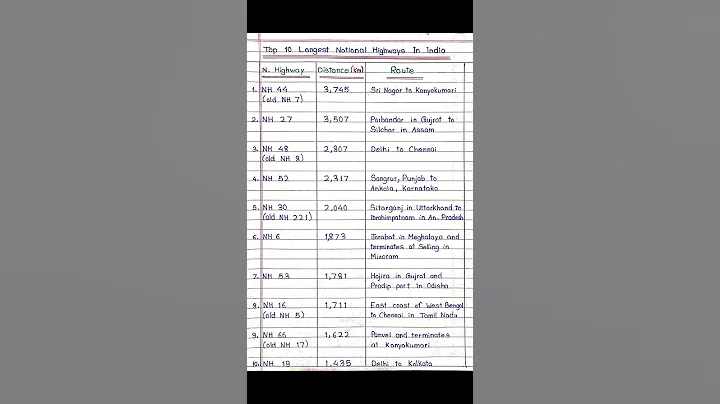 Top 10 Largest National Highways In India
N. Highway Distance (km) Route
1. NH 44 3,745 Sri Nagar to Kanyakumari
(old NH 7)
2. NH 27 3,507 Porbandar in Gujrat to
Silchar in Assam
3. NH 48 2,807 Delhi to Chennai
(old NH 8)
4. NH 52 2,317 Sangrur, Punjab to
Ankola, Karnataka
5. NH 30 2,040 Sitarganj in Uttarkhand to
(old NH 221) Ibrahimpatnam in An. Pradesh
6. NH 6 1,873 Jorabat in Meghalaya and
terminates at Selling in
Mizoram
7. NH 53 1,781 Hajira in Gujrat and
Pradip port in Odisha
8. NH 16 1,711 East coast of West Bengal
(old NH 5) to Chennai in Tamil Nadu
9. NH 66 1,622 Panvel and terminates
(old NH 17) at Kanyakumari
10. NH 19 1,435 Delhi to Kolkata